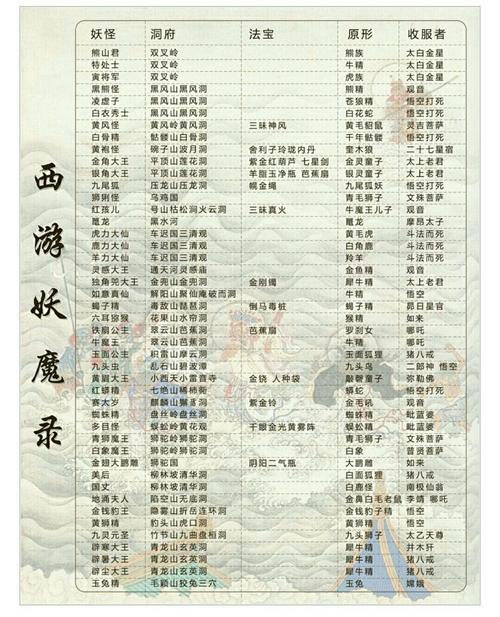 西游妖魔录
妖怪 洞府 法宝 原形 收服者
熊山君 双叉岭 熊族 太白金星
特处士 双叉岭 牛精 太白金星
寅将军 双叉岭 虎族 太白金星
黑熊怪 黑风山黑风洞 熊精 观音
凌虚子 黑风山黑风洞 苍狼精 悟空打死
白衣秀士 黑风山黑风洞 白花蛇 悟空打死
黄风怪 黄风岭黄风洞 三昧神风 黄毛貂鼠 灵吉菩萨
白骨精 骷髅山白骨洞 千年骷髅 悟空打死
黄袍怪 碗子山波月洞 舍利子玲珑内丹 奎木狼 二十七星宿
金角大王 平顶山莲花洞 紫金红葫芦 七星剑 金灵童子 太上老君
银角大王 平顶山莲花洞 羊脂玉净瓶 芭蕉扇 银灵童子 太上老君
九尾狐 压龙山压龙洞 幌金绳 九尾狐妖 悟空打死
狮猁怪 乌鸡国 青毛狮子 文殊菩萨
红孩儿 号山枯松涧火云洞 三昧真火 牛魔王儿子 观音
鼍龙 黑水河 鼍龙 摩昂太子
虎力大仙 车迟国三清观 黄毛虎 斗法而死
鹿力大仙 车迟国三清观 白角鹿 斗法而死
羊力大仙 车迟国三清观 羚羊 斗法而死
灵感大王 通天河灵感庙 金鱼精 观音
独角兕大王 金兜山金兜洞 金刚镯 犀牛精 太上老君
如意真仙 解阳山聚仙庵破而洞 牛精 悟空
蝎子精 毒敌山琵琶洞 倒马毒桩 蝎子精 昴日星官
六耳猕猴 花果山水帘洞 猴精 如来
铁扇公主 翠云山芭蕉洞 芭蕉扇 罗刹女 哪吒
牛魔王 翠云山芭蕉洞 牛精 哪吒
玉面公主 积雷山摩云洞 玉面狐狸 猪八戒
九头虫 乱石山碧波潭 九头鸟 二郎神 悟空
黄眉大王 小西天小雷音寺 金铙 人种袋 敲磬童子 弥勒佛
红蟒精 七绝山稀柿衕 蟒蛇 悟空打死
赛太岁 麒麟山獬豸洞 紫金铃 金毛犼 观音
蜘蛛精 盘丝岭盘丝洞 蜘蛛精 毗蓝婆
多目怪 蜈蚣岭黄花观 千眼金光黄雾阵 蜈蚣精 毗蓝婆
青狮魔王 狮驼岭狮驼洞 青毛狮子 文殊菩萨
白象魔王 狮驼岭狮驼洞 白象 普贤菩萨
金翅大鹏雕 狮驼国 阴阳二气瓶 大鹏雕 如来
美后 柳林坡清华洞 白面狐狸 猪八戒
国丈 柳林坡清华洞 白鹿怪 南极仙翁
地涌夫人 陷空山无底洞 金鼻白毛老鼠 李靖 哪吒
金钱豹王 隐雾山折岳连环洞 金钱豹子精 悟空
黄狮精 豹头山虎口洞 黄狮精 悟空
九灵元圣 竹节山九曲盘桓洞 九头狮子 太乙天尊
辟寒大王 青龙山玄英洞 犀牛精 井木犴
辟暑大王 青龙山玄英洞 犀牛精 猪八戒
辟尘大王 青龙山玄英洞 犀牛精 猪八戒
玉兔精 毛颖山狡兔三穴 玉兔 嫦娥